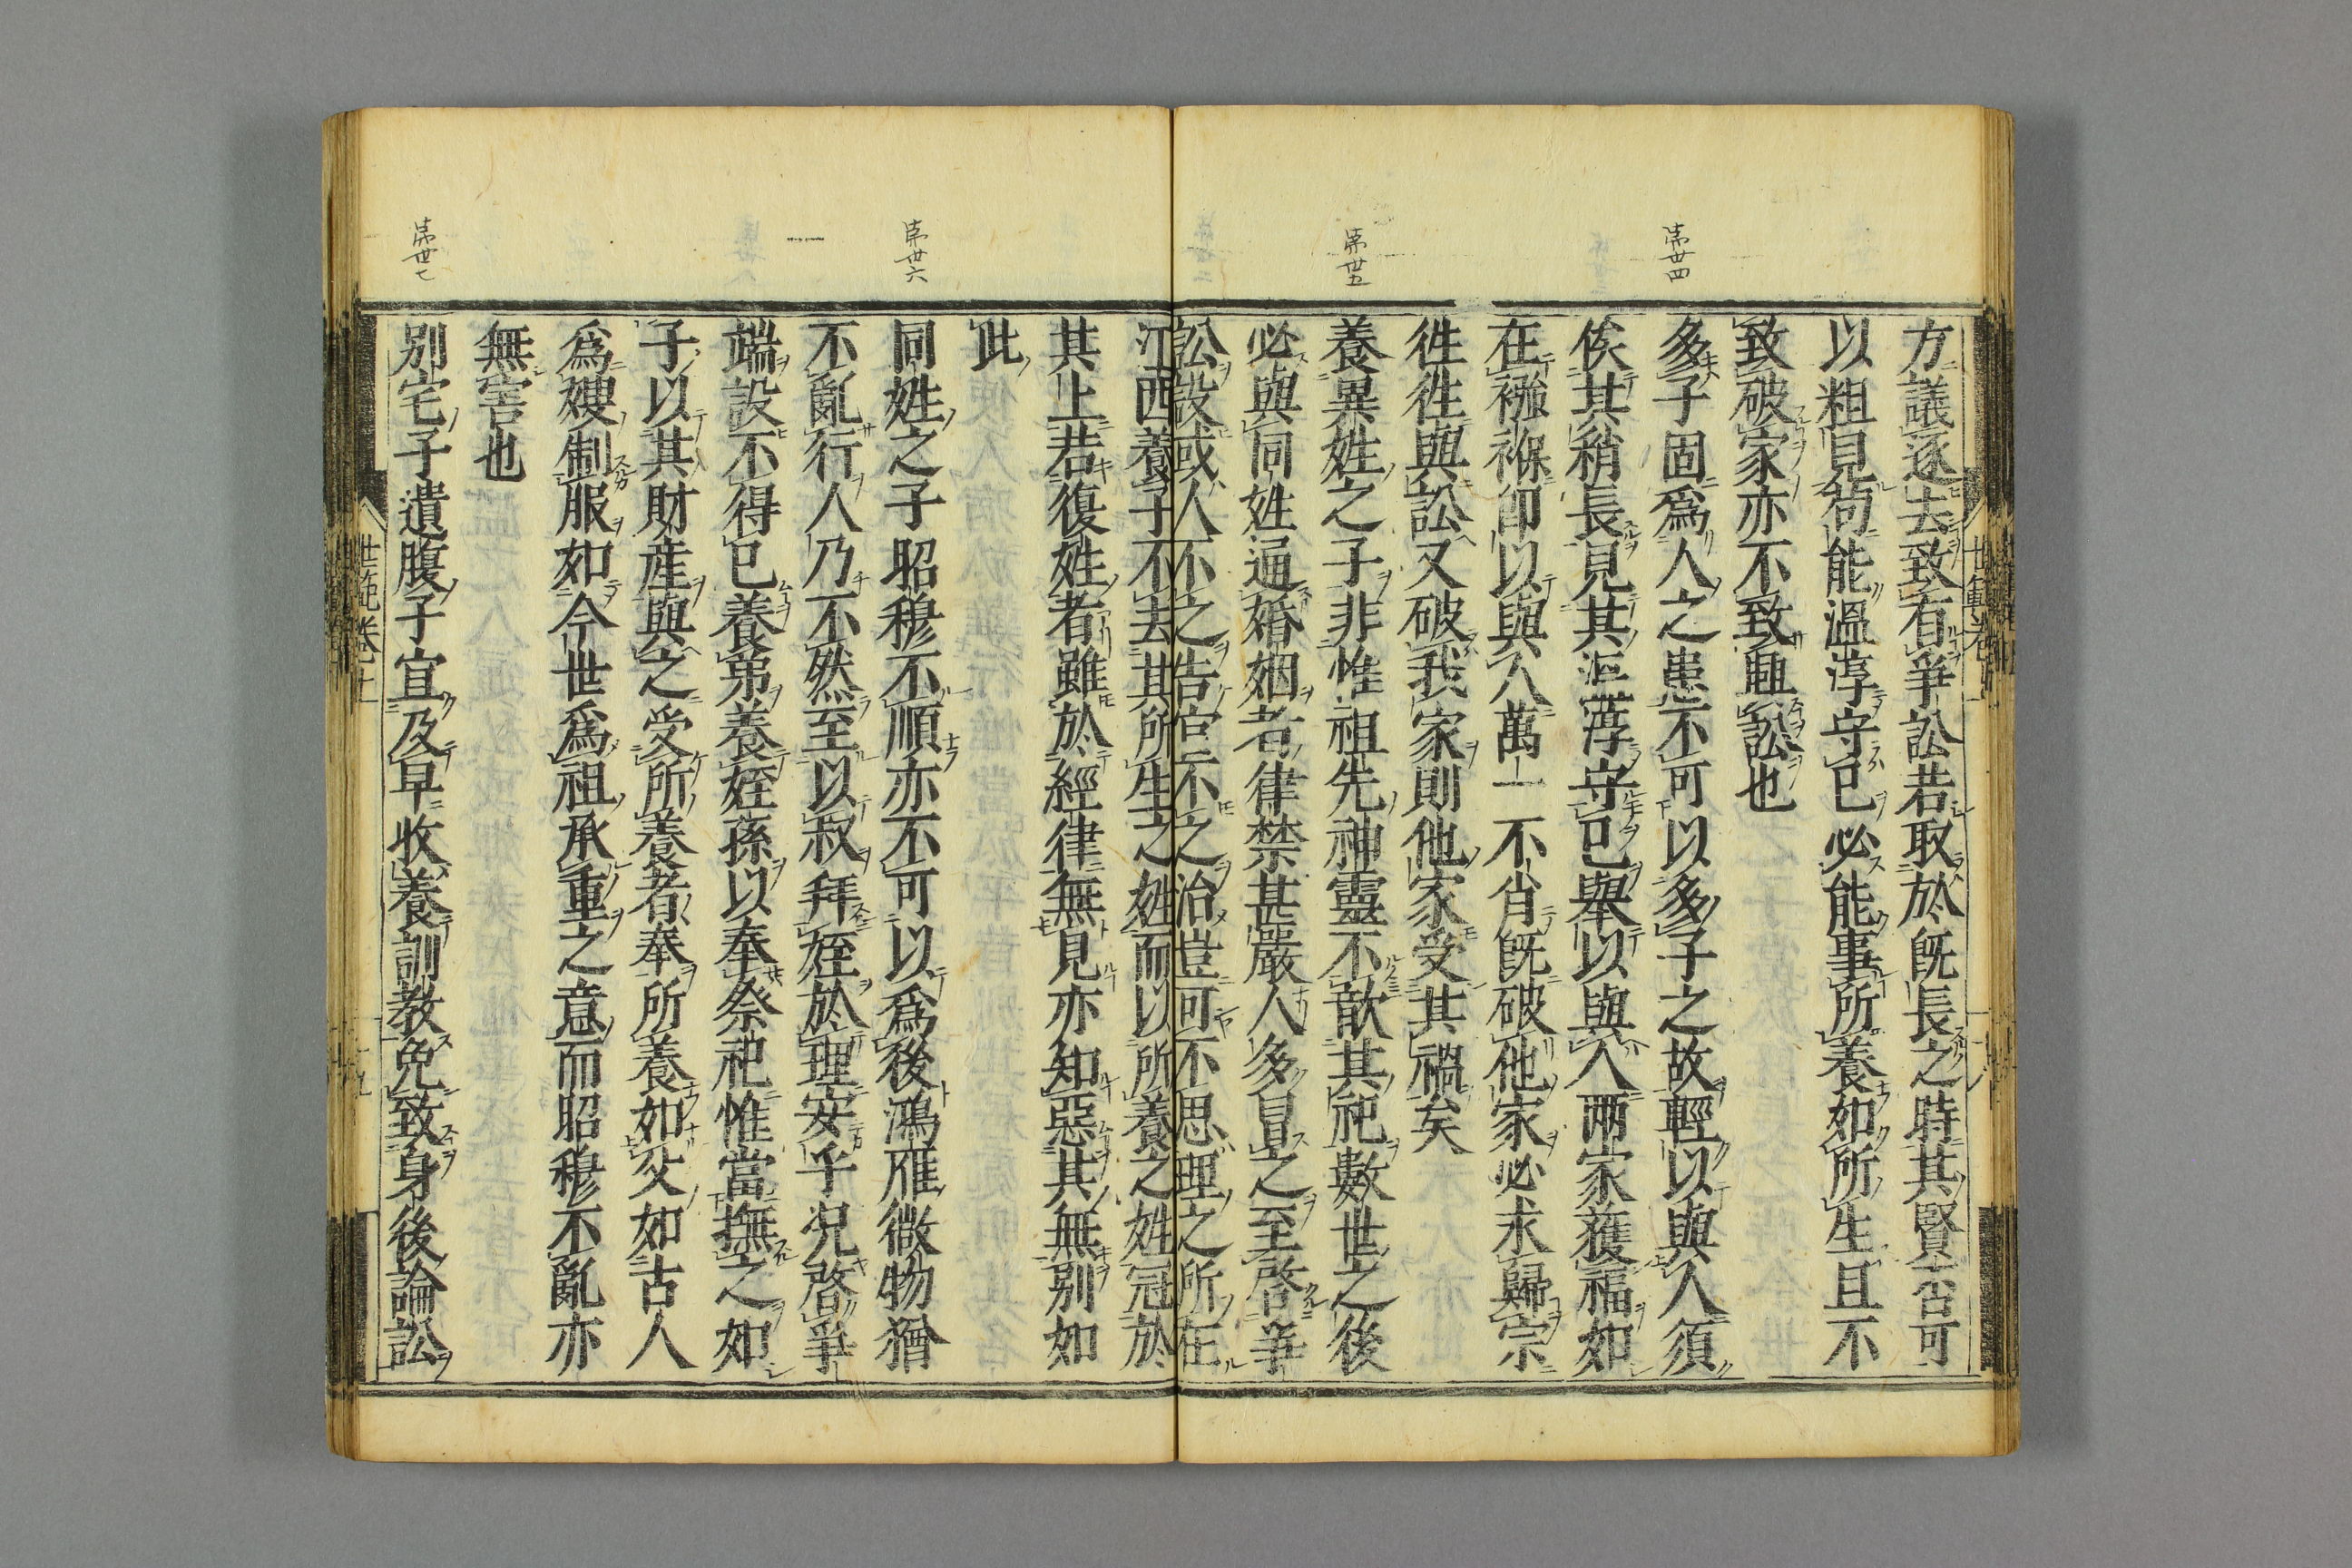 第丗四
第丗五
方議逐去致有爭訟若取於旣長之時其賢否可
以粗見苟能溫淳守已必能事所養如所生且不
致破家亦不致興訟也
多子固爲人之患不可以多子之故輕以與人須
俟其稍長見其溫淳守已舉以與人兩家獲福如
在襁褓卽以與人萬一不肖旣破他家必求歸宗
徃徃與訟又破我家則他家受其禍矣
養異姓之子非惟祖先神靈不歆其祀數世之後
必與同姓通婚姻者律禁甚嚴人多冒之至啓爭
訟設或人不之告官不之治豈可不思理之所在
第丗六
第丗七
江西養子不去其所生之姓而以所養之姓冠於
其上若復姓者雖於經律無見亦知惡其無别如
此
同姓之子昭穆不順亦不可以爲後鴻雁微物猶
不亂行人乃不然至以叔拜姪於理安乎况啓爭
端設不得已養弟養姪孫以奉祭祀惟當撫之如
子以其財產與之受所養者奉所養如父如古人
爲嫂制服如今世爲祖承重之意而昭穆不亂亦
無害也
别宅子遺腹子宜及早收養訓教免致身後論訟
世範卷上